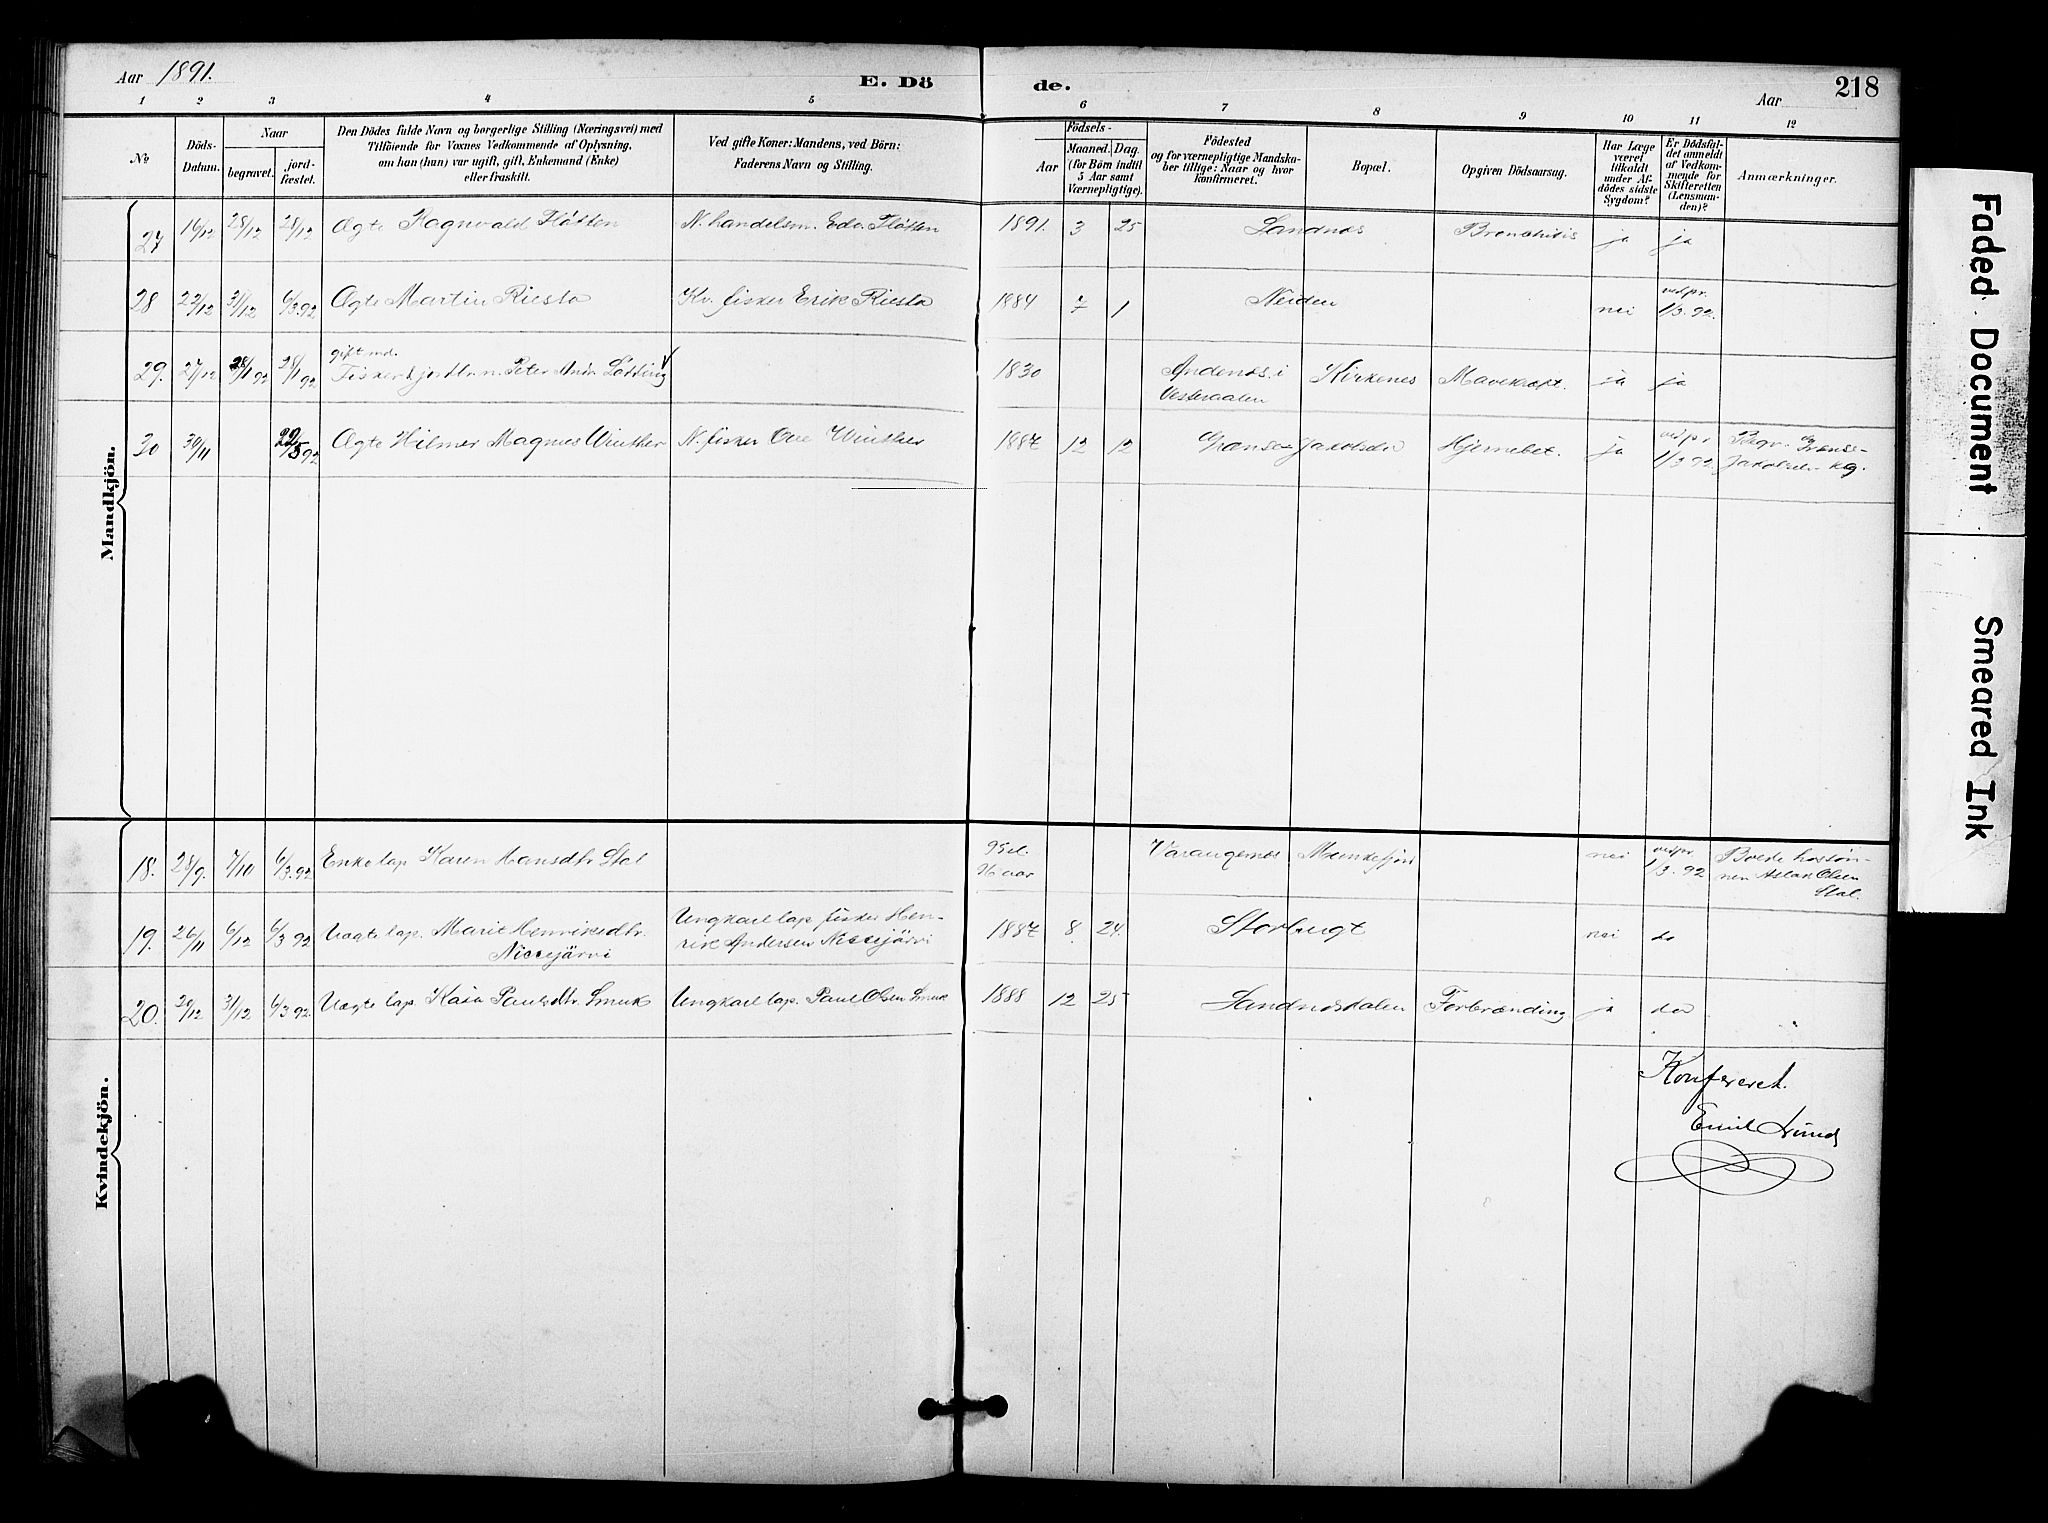 Aar 1891.
E. Dö
de.
Aar
218
1 2 3 4 5 6 7 8 9 10 11 12
No
Döds-Datum.
Naar
begravet.
jord-fæstet.
Den Dödes fulde Navn og borgerlige Stilling (Næringsvei) med
Tilföiende for Voxnes Vedkommende af Oplysning,
om han (hun) var ugift, gift, Enkemand (Enke)
eller fraskilt.
Ved gifte Koner: Mandens, ved Börn:
Faderens Navn og Stilling.
Födsels-
Aar
Maaned. Dag.
(for Börn indtil
5 Aar samt
Værnepligtige).
Födested
og for værnepligtige Mandska-
ber tillige: Naar og hvor
konfirmeret.
Bopæl.
Opgiven Dödsaarsag.
Har Læge
været
tilkaldt
under Af-
dödes sidste
Sygdom?
Er Dödsfal-
det anmeldt
af Vedkom-
mende for
Skifteretten
(Lensman-
den)?
Anmærkninger.
Mandkjön.
27 16/12 28/12 28/12 Ægte Ragnvald Fløtten N. handelsm. Edv. Fløtten 1891. 3 25 Sandnes Bronchitis ja ja
28 22/12 31/12 6/3 92 Ægte Martin Riesto Kv. fisker Erik Riesto 1884 7 1 Neiden nei vedpr. 1/3. 92.
gift md.
29. 27/12 28/1 92 28/1 92 Fisker & jordbr. n. Peter Andr. 1830 Andenes i Vesteraalen Kirkenes Mavekræft. ja ja
30 30/11 22/5 92 Ægte Hilmer Magnus Winther N. fisker Ove Winther 1887 12 12 Grænse-Jakobselv Hjernebet. ja vedpr. 1/3 92. Begr. Grænse-
Jakobselv kg.
Kvindekjön.
18. 28/9. 7/10 6/3. 92 Enke lap Karen Hansdtr Stal 95 el. 96 aar Varangernes Munkefjord nei vedpr. 1/3. 92 Boede hos søn-
nen Aslak Olsen
Stal.
19. 26/11 6/12 6/3 92 Uægte lap. Marit Henriksdtr. Niccijärvi Ungkarl lap fisker Hen-
rik Andersen Niccijärvi 1887 8. 24. Storbugt nei do
20. 29/12 31/12 6/3 92. Uægte lap. Kaia Paulsdtr. Smuk Ungkarl lap. Paul Olsen Smuk 1888 12 25 Sandnesdalen Forbrænding ja do
Konfereret.
Emil Lund
Faded Document
Smeared Ink